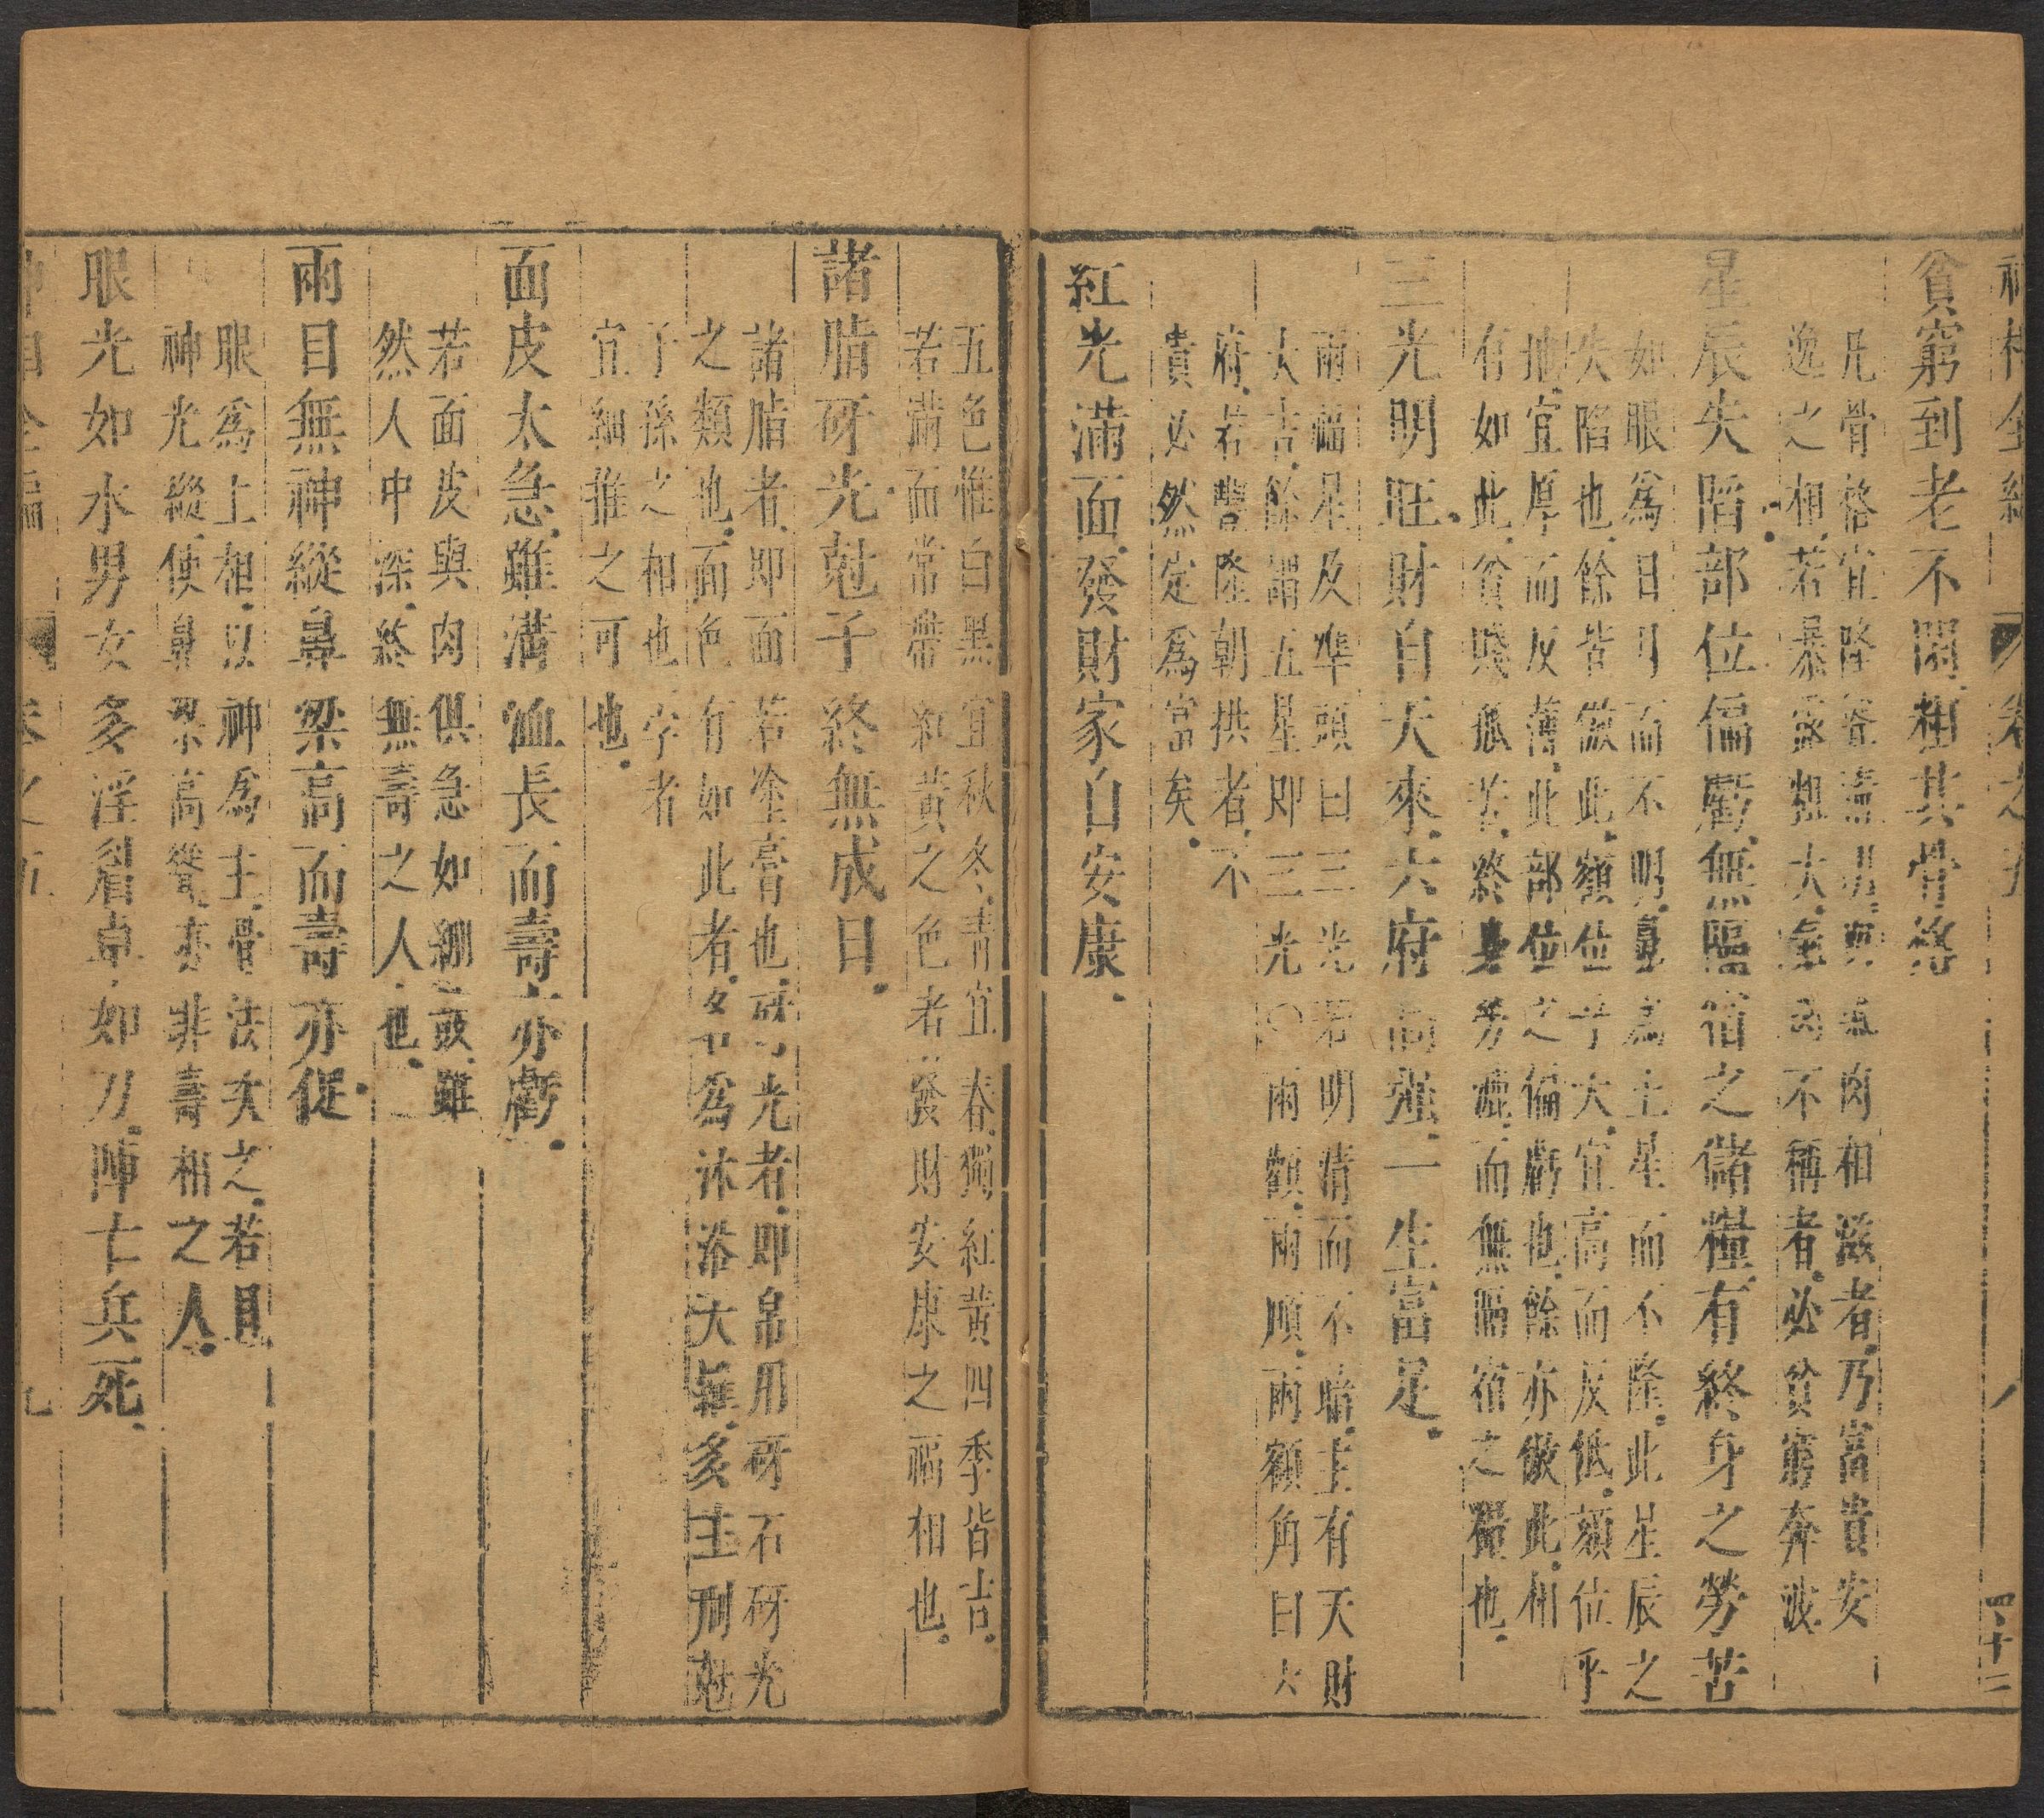 神相全編 卷之五 四十二
貧窮到老不閒粗其骨格
凡骨格宜隆聳清明與氣肉相滋者乃富貴安
逸之相若暴露粗大氣肉不稱者必貧窮奔波
星辰失陷部位偏虧無隔宿之儲糧有終身之勞苦
如眼為日月而不明鼻為土星而不隆此星辰之
失陷也餘皆倣此額位乎大宜高而反低頦位乎
地宜厚而反薄此部位之偏虧也餘亦倣此相
有如此貧賤孤苦終身勞碌而無隔宿之糧也
三光明旺財自天來六府高強一生富足
兩福星及準頭曰三光若明清而不暗主有天財
大吉餘謂五星即三光〇兩顴兩頤兩額角曰六
府若豐隆朝拱者不
貴必然定為富矣
紅光滿面發財家自安康
五色惟白黑宜秋冬青宜春獨紅黃四季皆吉
若滿面常帶紅黃之色者發財安康之福相也
諸脂砑光尅子終無成日
諸脂者即面若塗膏也砑光者即帛用砑石砑光
之類也面色有如此者名曰為沐浴大無多主刑尅
子孫之相也字者
宜細推之可也
面皮太急雖溝洫長而壽亦虧
若面皮與肉俱急如綳鼓雖
然人中深終無壽之人也
兩目無神縱鼻梁高而壽亦促
眼為上相以神為主骨法次之若目
神光縱使鼻梁高聳亦非壽相之人
眼光如水男女多淫眉卓如刀陣亡兵死
神相全編 卷之五